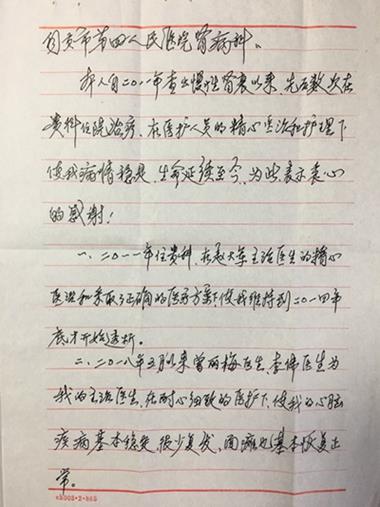 自贡市第四人民医院肾病科。
本人自二〇一一年查出慢性肾衰以来,先后数次在
贵科住院治疗,在医护人员的精心医治和护理下
使我病情稳定,生命延续至今,为此表示衷心
的感谢!
一、二〇一一年住贵科,在赵大军主治医生的精心
医治和采取正确的医疗方案下使我维持到二〇一四年
底才开始透析。
二、二〇一八年三月以来曾丽梅医生,李伟医生为
我的主治医生,在耐心细致的医护下,使我的心脏
疾病基本稳定,很少复发,面瘫也基本恢复正
常。